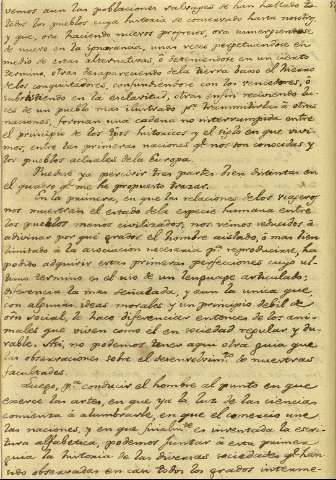 vemos aun las poblaciones salvages se han hallado
todos los pueblos cuya historia se conservado hasta nosotros,
y que, ora haciendo nuevos progresos, ora sumergiendose
de nuevo en la ignorancia, unas veces perpetuandose en
medio de estas alternativas, ó deteniendose en un cierto
termino, otras desapareciendo de la tierra baxo el hierro
de los conquistadores, confundiendose con los vencedores, ó
subsistiendo en la esclavitud, otras enfin reciviendo lu-
ces de un pueblo mas ilustrado pª. transmitirlas á otras
naciones, forman una cadena no interrumpida entre
el principio de los tpos historicos y el siglo en que vivi-
mos, entre las primeras naciones qᵉ nos son conocidas y
los pueblos actuales de la Europa.
Puedese ya percivir tres partes bien distintas en
el quadro qᵉ me he propuesto trazar.
En la primera, en que las relaciones de los viageros
nos muestran el estado de la especie humana entre
los pueblos menos civilizados, nos vemos reducidos á
adivinar por qué grados el hombre aislado, ó mas bien
limitado á la asociacion necesaria pª. reproducirse, ha
podido adquirir estas primeras perfecciones cuyo ul-
timo termino es el uso de un lenguage articulado;
diferencia la mas señalada, y aun la unica que,
con algunas ideas morales y un principio debil de
orn social, le hace diferenciar entonces de los ani-
males que viven como el en sociedad regular y du-
rable. Asi, no podemos tener aqui otra guia que
las observaciones sobre el desenvolvimᵗᵒ de nuestras
facultades.
Luego, pª. conducir el hombre al punto en que
exerce las artes, en que ya la luz de las ciencias
comienza á alumbrarle, en que el comercio une
las naciones, y en que finalmᵗᵉ es inventada la escri-
tura alfabetica, podemos juntar á esta primera
guia la historia de las diversas sociedades qᵉ han
sido observadas en casi todos los grados interme-